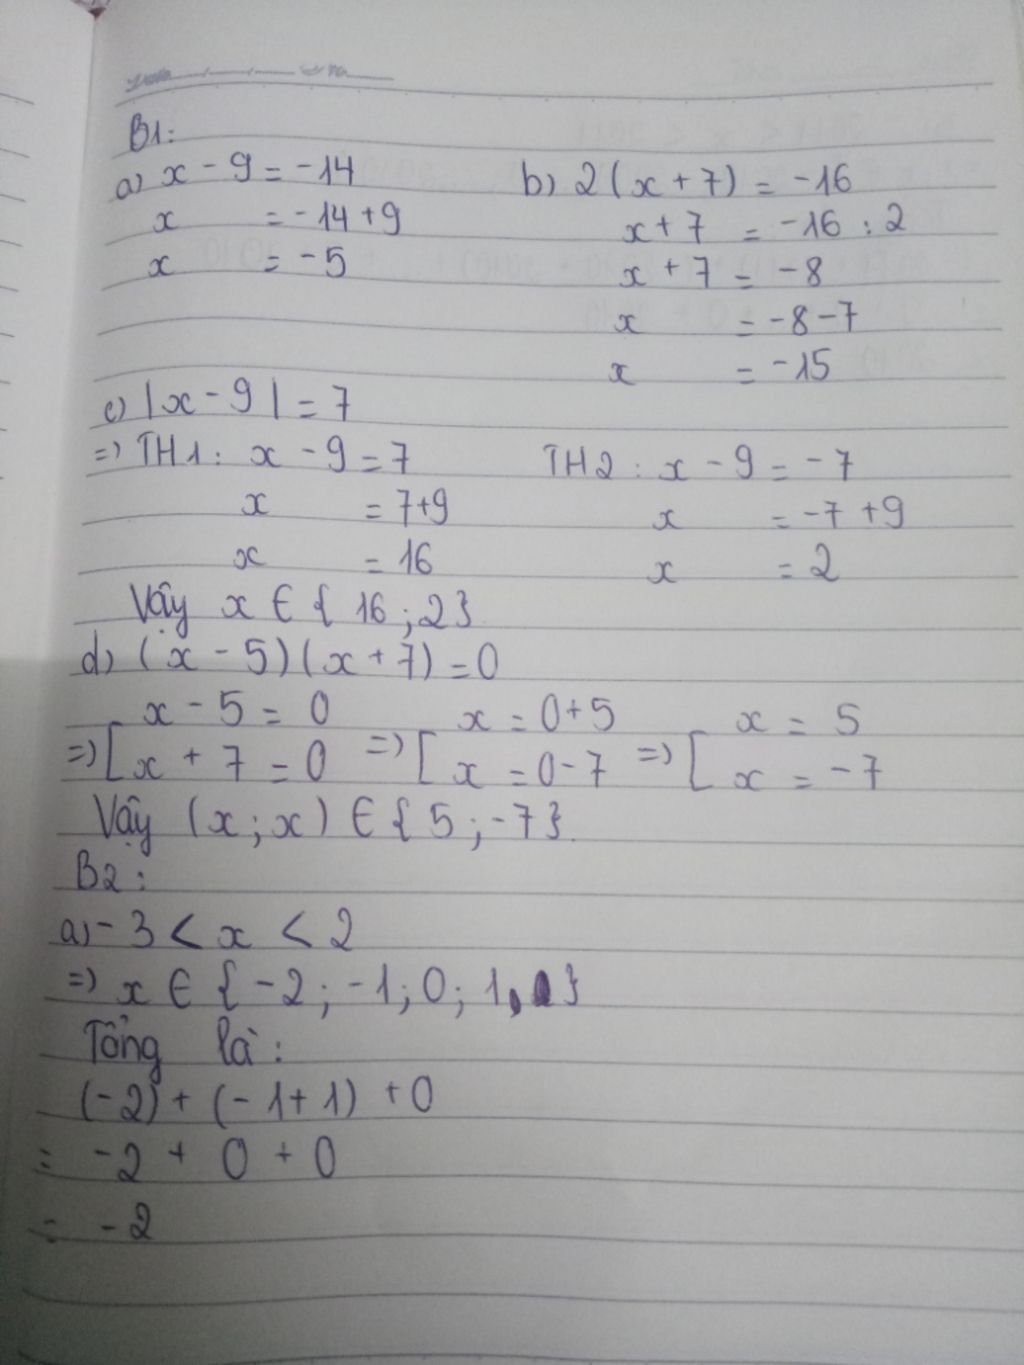 B1:
a) x - 9 = -14
x = -14 + 9
x = -5
b) 2(x + 7) = -16
x + 7 = -16 : 2
x + 7 = -8
x = -8 - 7
x = -15
c) |x - 9| = 7
=> TH1: x - 9 = 7
x = 7+9
x = 16
TH2: x - 9 = -7
x = -7 + 9
x = 2
Vậy x ∈ { 16 ; 2 }
d) (x - 5)(x + 7) = 0
x - 5 = 0 x = 0+5 x = 5
=> [ x + 7 = 0 => [ x = 0-7 => [ x = -7
Vậy (x ; x) ∈ { 5 ; -7 }.
B2:
a) -3 < x < 2
=> x ∈ { -2 ; -1 ; 0 ; 1 }
Tổng là:
(-2) + (-1+1) + 0
= -2 + 0 + 0
= -2